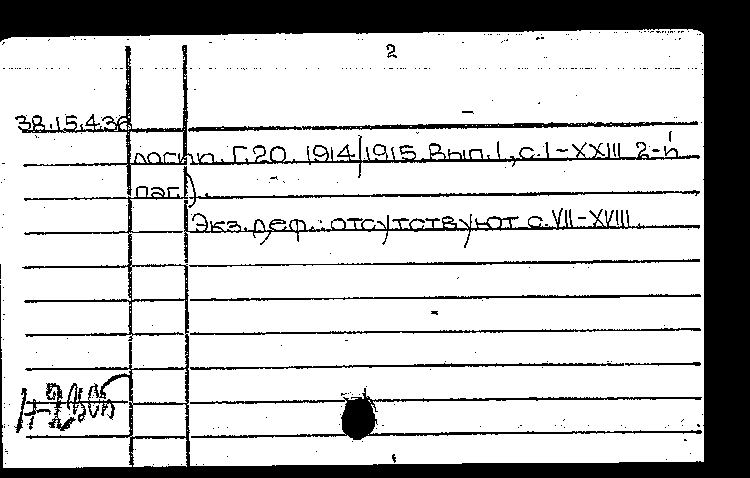 2
38.15.4.36
логии. Г.20. 1914/1915. Вып.1, с.I-XXIII 2-й
паг.).
Экз.деф.: отсутствуют с.VII-XVIII.